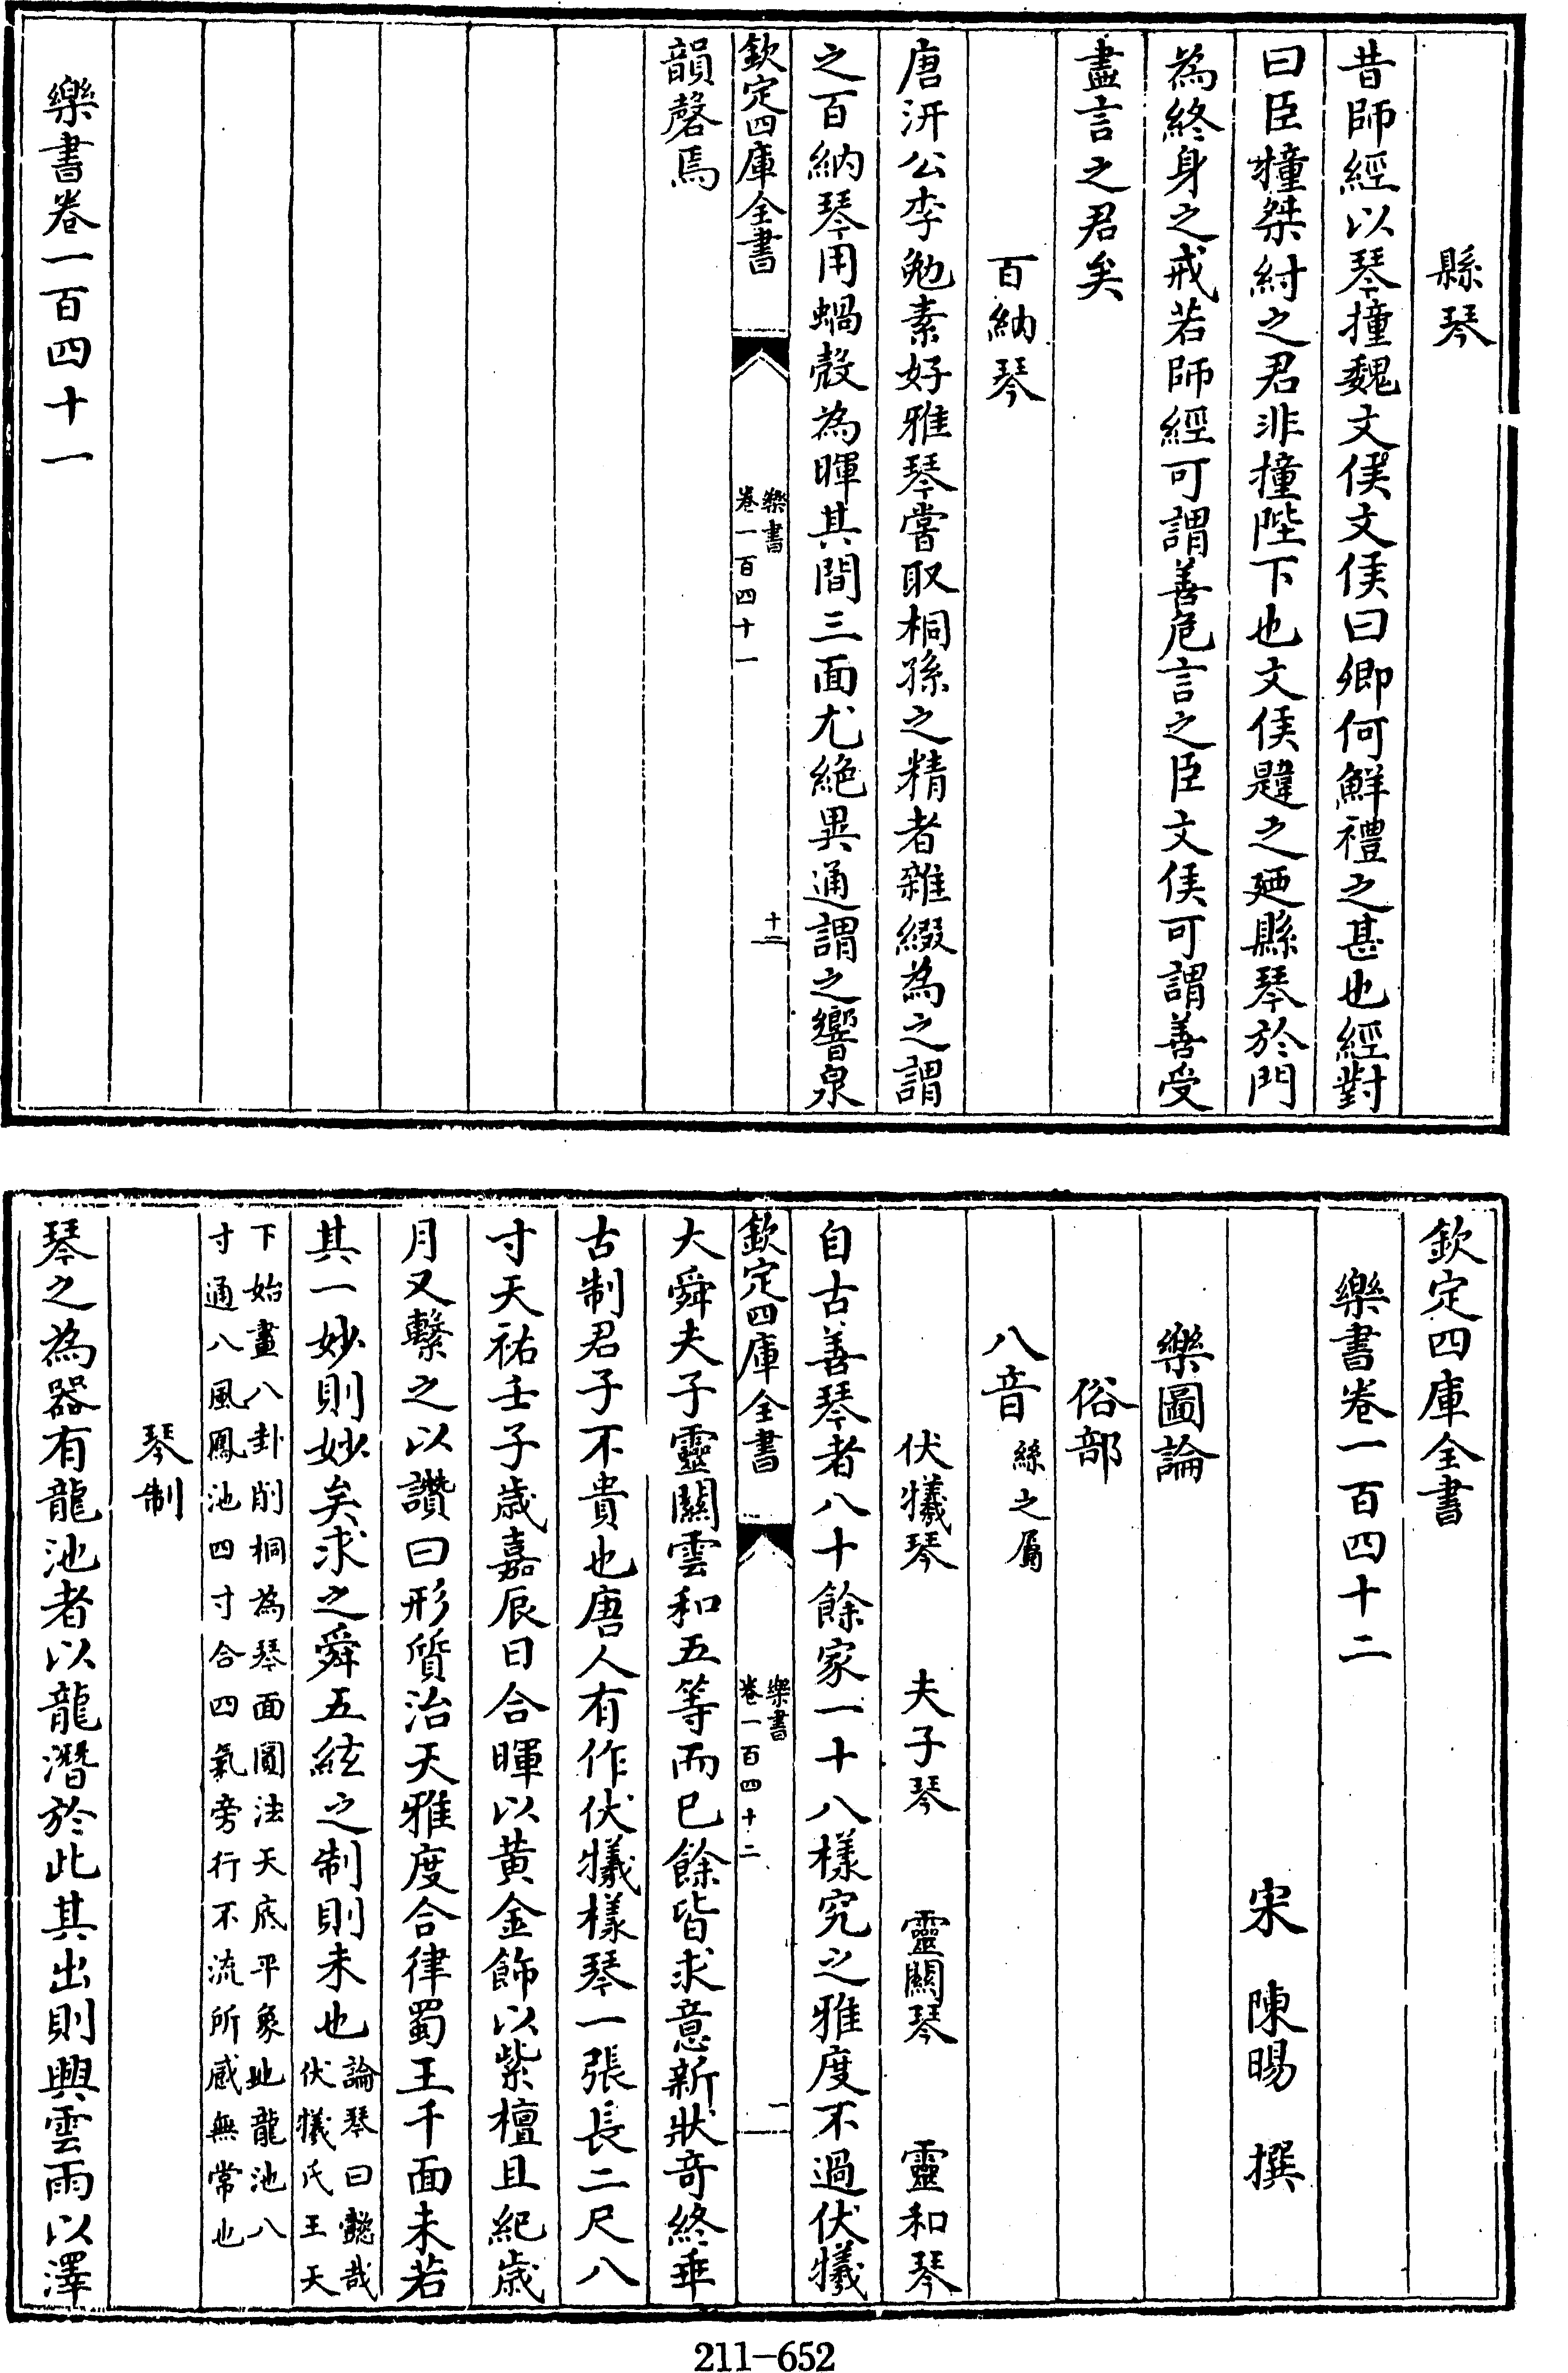 縣琴
昔師經以琴撞魏文侯文侯曰卿何鮮禮之甚也經對
曰臣撞桀紂之君非撞陛下也文侯韙之廼縣琴於門
為終身之戒若師經可謂善危言之臣文侯可謂善受
盡言之君矣
百納琴
唐汧公李勉素好雅琴嘗取桐孫之精者雜綴為之謂
之百納琴用蝸殻為暉其間三面尤絶異通謂之響泉
欽定四庫全書
樂書
卷一百四十一
十二
韻磬焉
樂書卷一百四十一
欽定四庫全書
樂書卷一百四十二
宋 陳暘 撰
樂圖論
俗部
八音 絲之屬
伏犧琴 夫子琴 靈關琴 靈和琴
自古善琴者八十餘家一十八様究之雅度不過伏犧
欽定四庫全書
樂書
卷一百四十二
一
大舜夫子靈關雲和五等而已餘皆求意新狀竒終乖
古制君子不貴也唐人有作伏犧様琴一張長二尺八
寸天祐壬子歳嘉辰日合暉以黄金飾以紫檀且紀歳
月又繫之以讚曰形質治天雅度合律蜀王千面未若
其一妙則妙矣求之舜五絃之制則未也
論琴曰懿哉
伏犧氏王天
下始畫八卦削桐為琴面圓法天底平象地龍池八
寸通八風鳳池四寸合四氣旁行不流所感無常也
琴制
琴之為器有龍池者以龍潛於此其出則興雲雨以澤
211-652